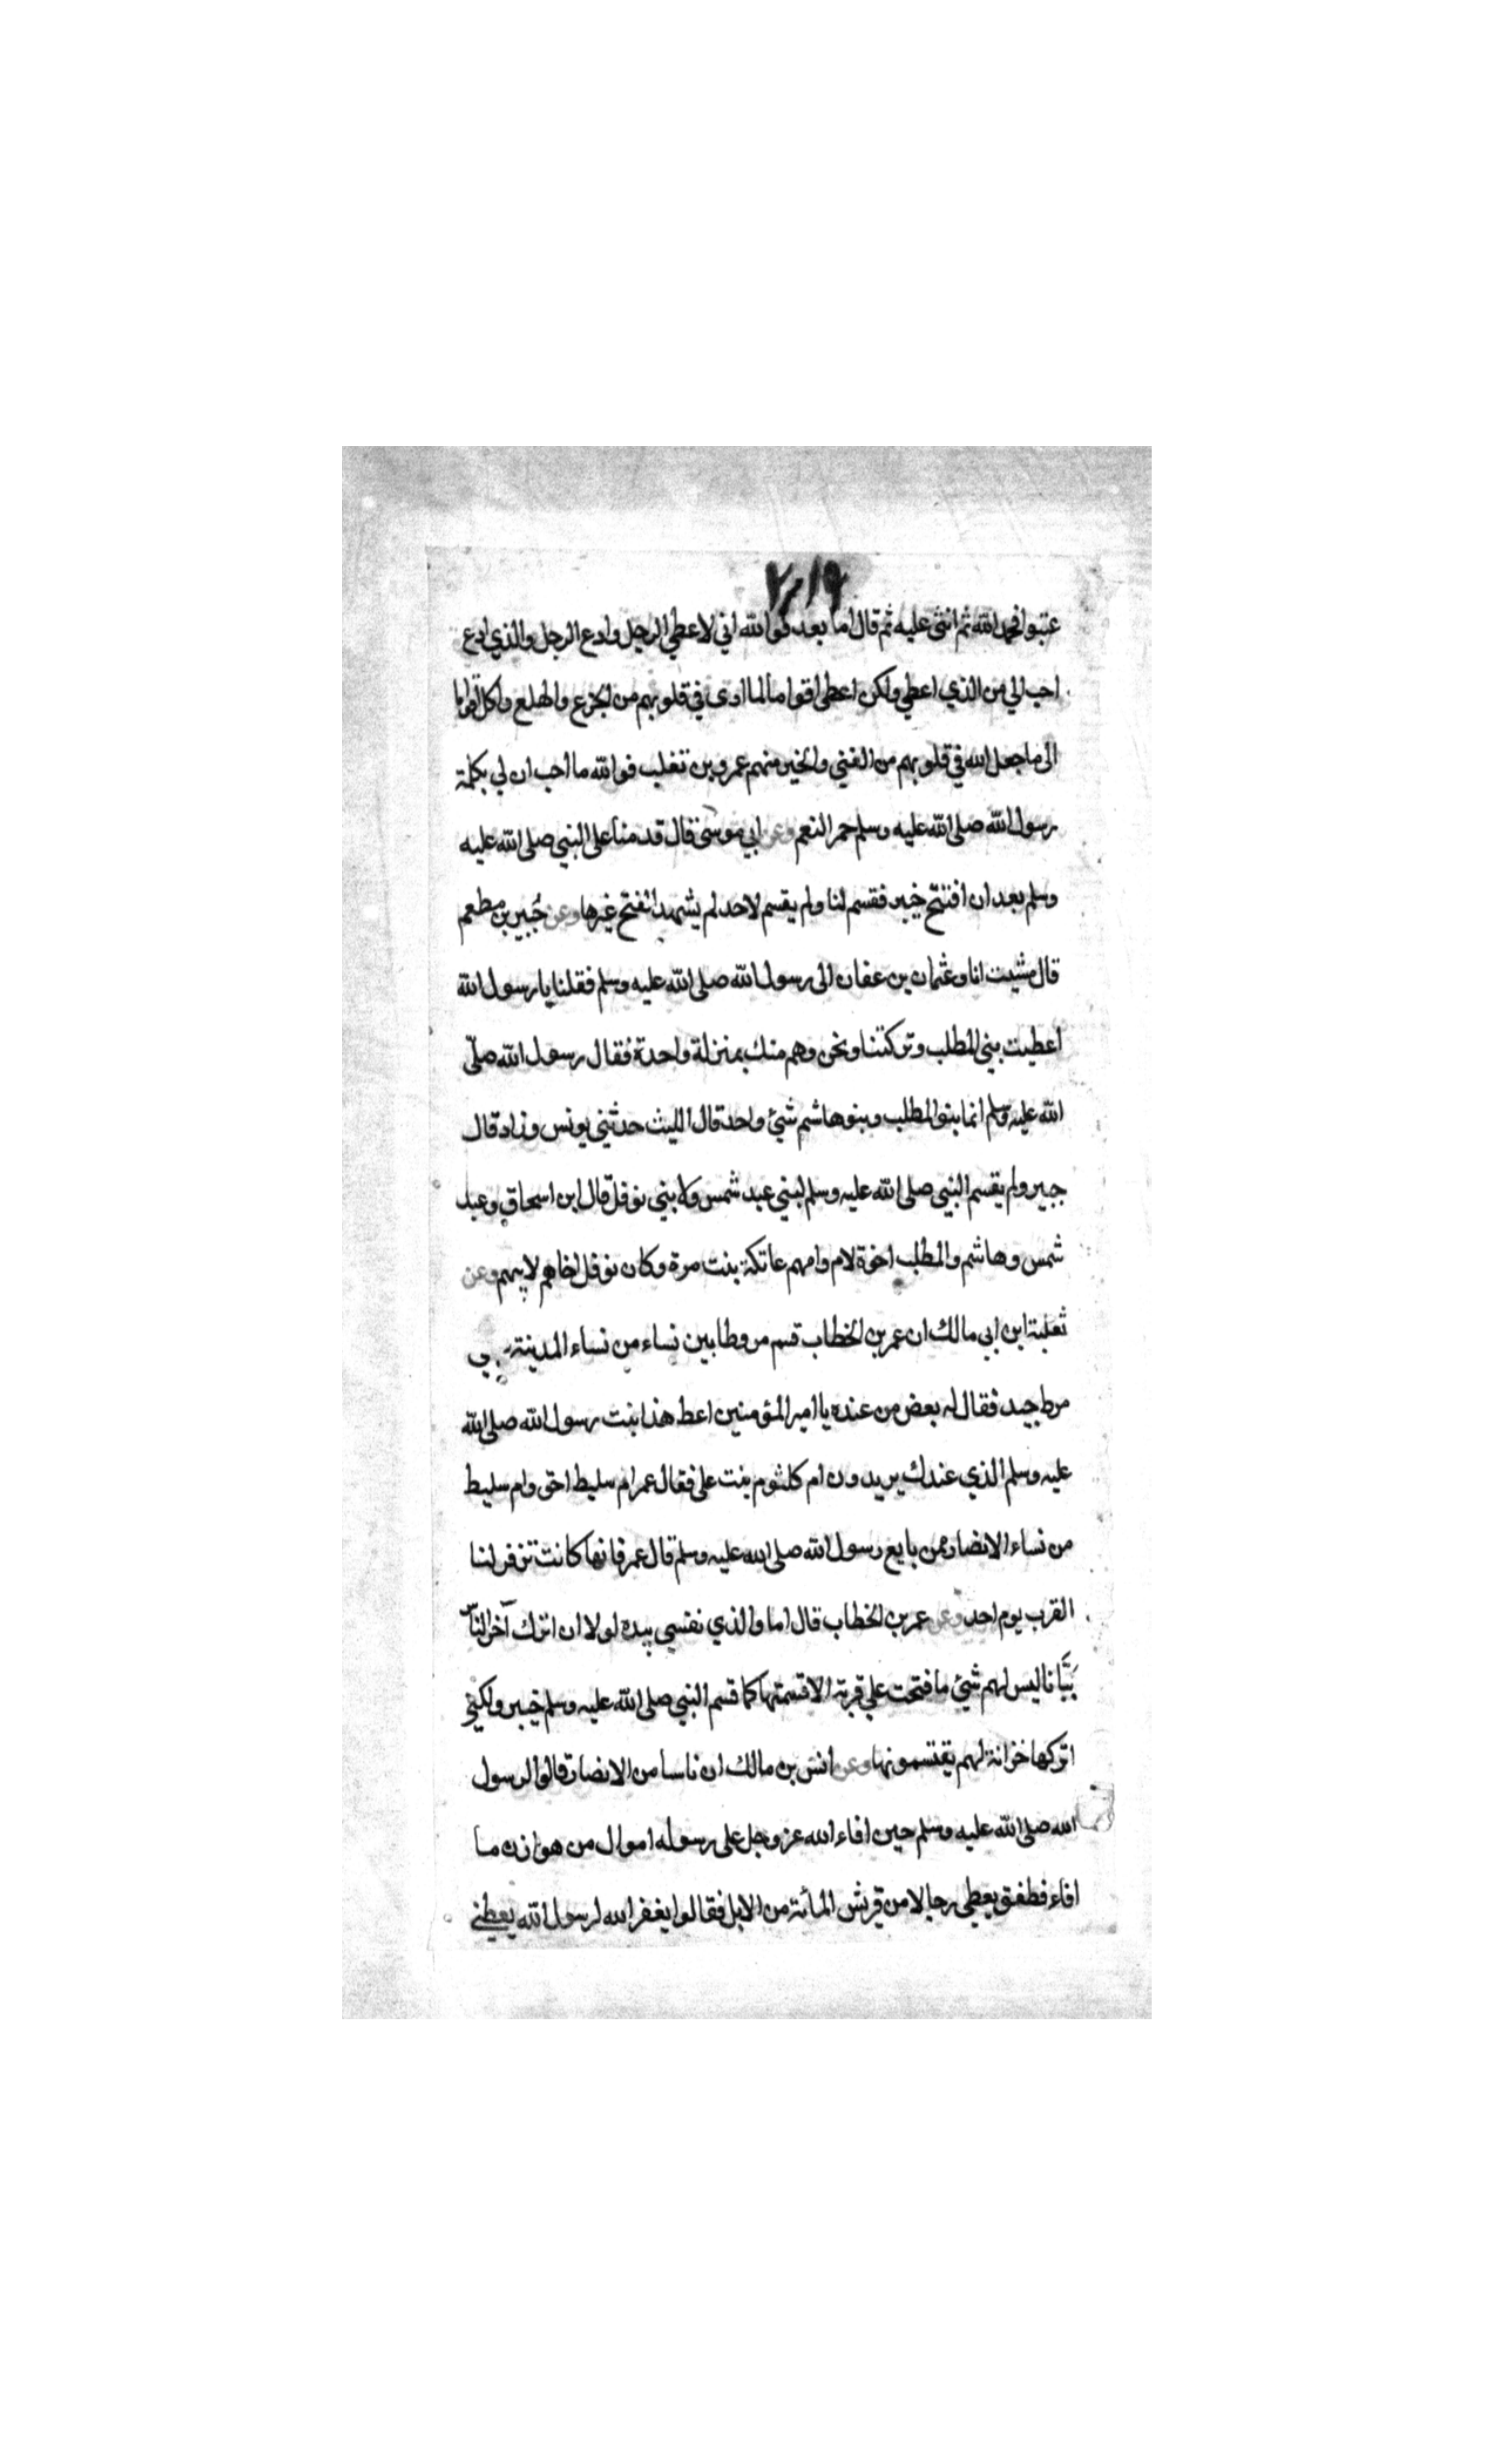 ٢١٩
عتبوا فحمد الله ثم اثنى عليه ثم قال اما بعد فوالله اني لاعطي الرجل وادع الرجل والذي ادع
احب الي من الذي اعطي ولكن اعطي اقواما لما ارى في قلوبهم من الجزع والهلع واكل اقواما
الى ما جعل الله في قلوبهم من الغنى والخير منهم عمرو بن تغلب فوالله ما احب ان لي بكلمة
رسول الله صلى الله عليه وسلم حمر النعم وعن ابي موسى قال قدمنا على النبي صلى الله عليه
وسلم بعد ان افتتح خيبر فقسم لنا ولم يقسم لاحد لم يشهد الفتح غيرها وعن جُبير بن مطعم
قال مشيت انا وعثمان بن عفان الى رسول الله صلى الله عليه وسلم فقلنا يا رسول الله
اعطيت بني المطلب وتركتنا ونحن وهم منك بمنزلة واحدة فقال رسول الله صلى
الله عليه وسلم انما بنو المطلب وبنو هاشم شئ واحد قال الليث حدثني يونس وزاد قال
جبير ولم يقسم النبي صلى الله عليه وسلم لبني عبد شمس ولا بني نوفل قال ابن اسحاق وعبد
شمس وهاشم والمطلب اخوة لام وامهم عاتكة بنت مرة وكان نوفل اخاهم لابيهم وعن
ثعلبة ابن ابي مالك ان عمر بن الخطاب قسم مروطا بين نساء من نساء المدينة
مرط جيد فقال له بعض من عنده يا امير المؤمنين اعط هذا بنت رسول الله صلى الله
عليه وسلم الذي عندك يريدون ام كلثوم بنت علي فقال عمر ام سليط احق وام سليط
من نساء الانصار ممن بايع رسول الله صلى الله عليه وسلم قال عمر فانها كانت تزفر لنا
القرب يوم احد وعن عمر بن الخطاب قال اما والذي نفسي بيده لولا ان اترك آخر الناس
بَبَّانا ليس لهم شئ ما فتحت علي قرية الا قسمتها كما قسم النبي صلى الله عليه وسلم خيبر ولكني
اتركها خزانة لهم يقتسمونها وعن انس بن مالك ان ناسا من الانصار قالوا لرسول
الله صلى الله عليه وسلم حين افاء الله عز وجل على رسوله اموال من هوازن ما
افاء فطفق يعطي رجالا من قريش المائة من الابل فقالوا يغفر الله لرسول الله يعطي